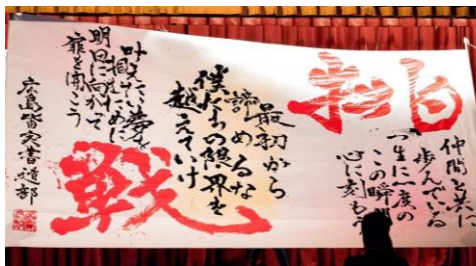 仲間と共に
歩んでいる
一生に一度の
この瞬間
心に刻もう
最初から
諦めるな
僕たちの限界を
越えていけ
戦
叶えたい夢を
掴むために
明日に向かって
扉を開こう
広島皆実書道部